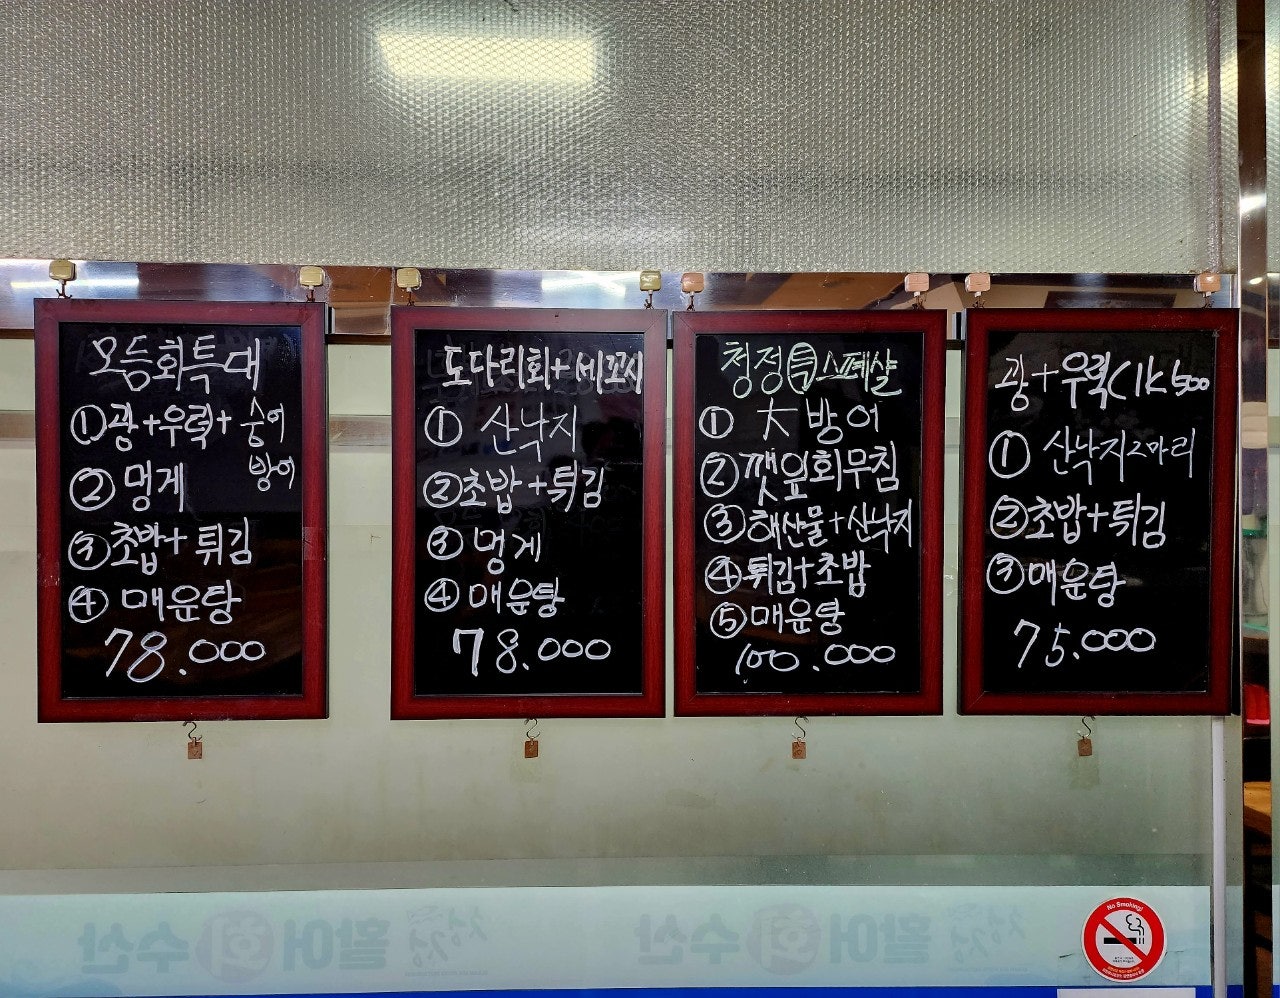 모듬회특대
①광+우럭+숭어
방어
②멍게
③초밥+튀김
④매운탕
78.000
도다리회+세꼬시
①산낙지
②초밥+튀김
③멍게
④매운탕
78.000
청정특스페샬
①大방어
②깻잎회무침
③해산물+산낙지
④튀김+초밥
⑤매운탕
100.000
광+우럭(1K500
①산낙지2마리
②초밥+튀김
③매운탕
75.000
청정활어회수산
청정활어회수산
No Smoking!